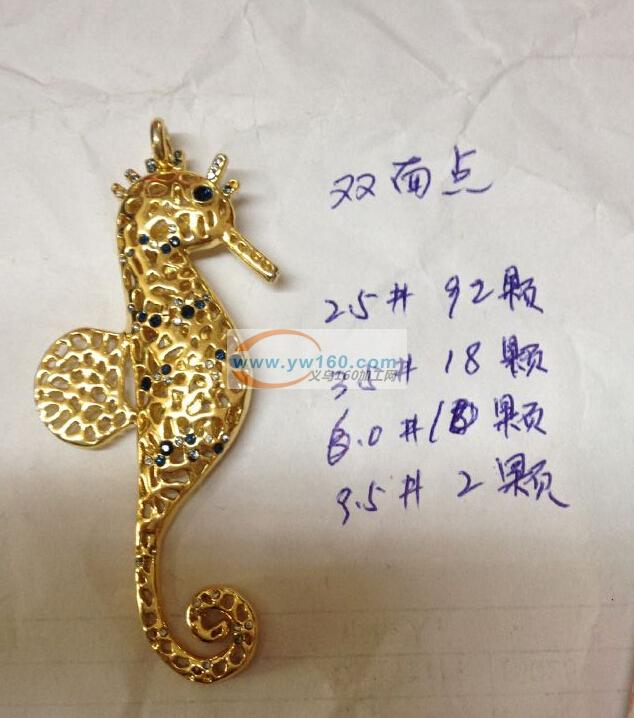 双面点
2.5# 92颗
www.yw160.com
义乌160加工网
5.5# 18颗
6.0# 颗
9.5# 2颗